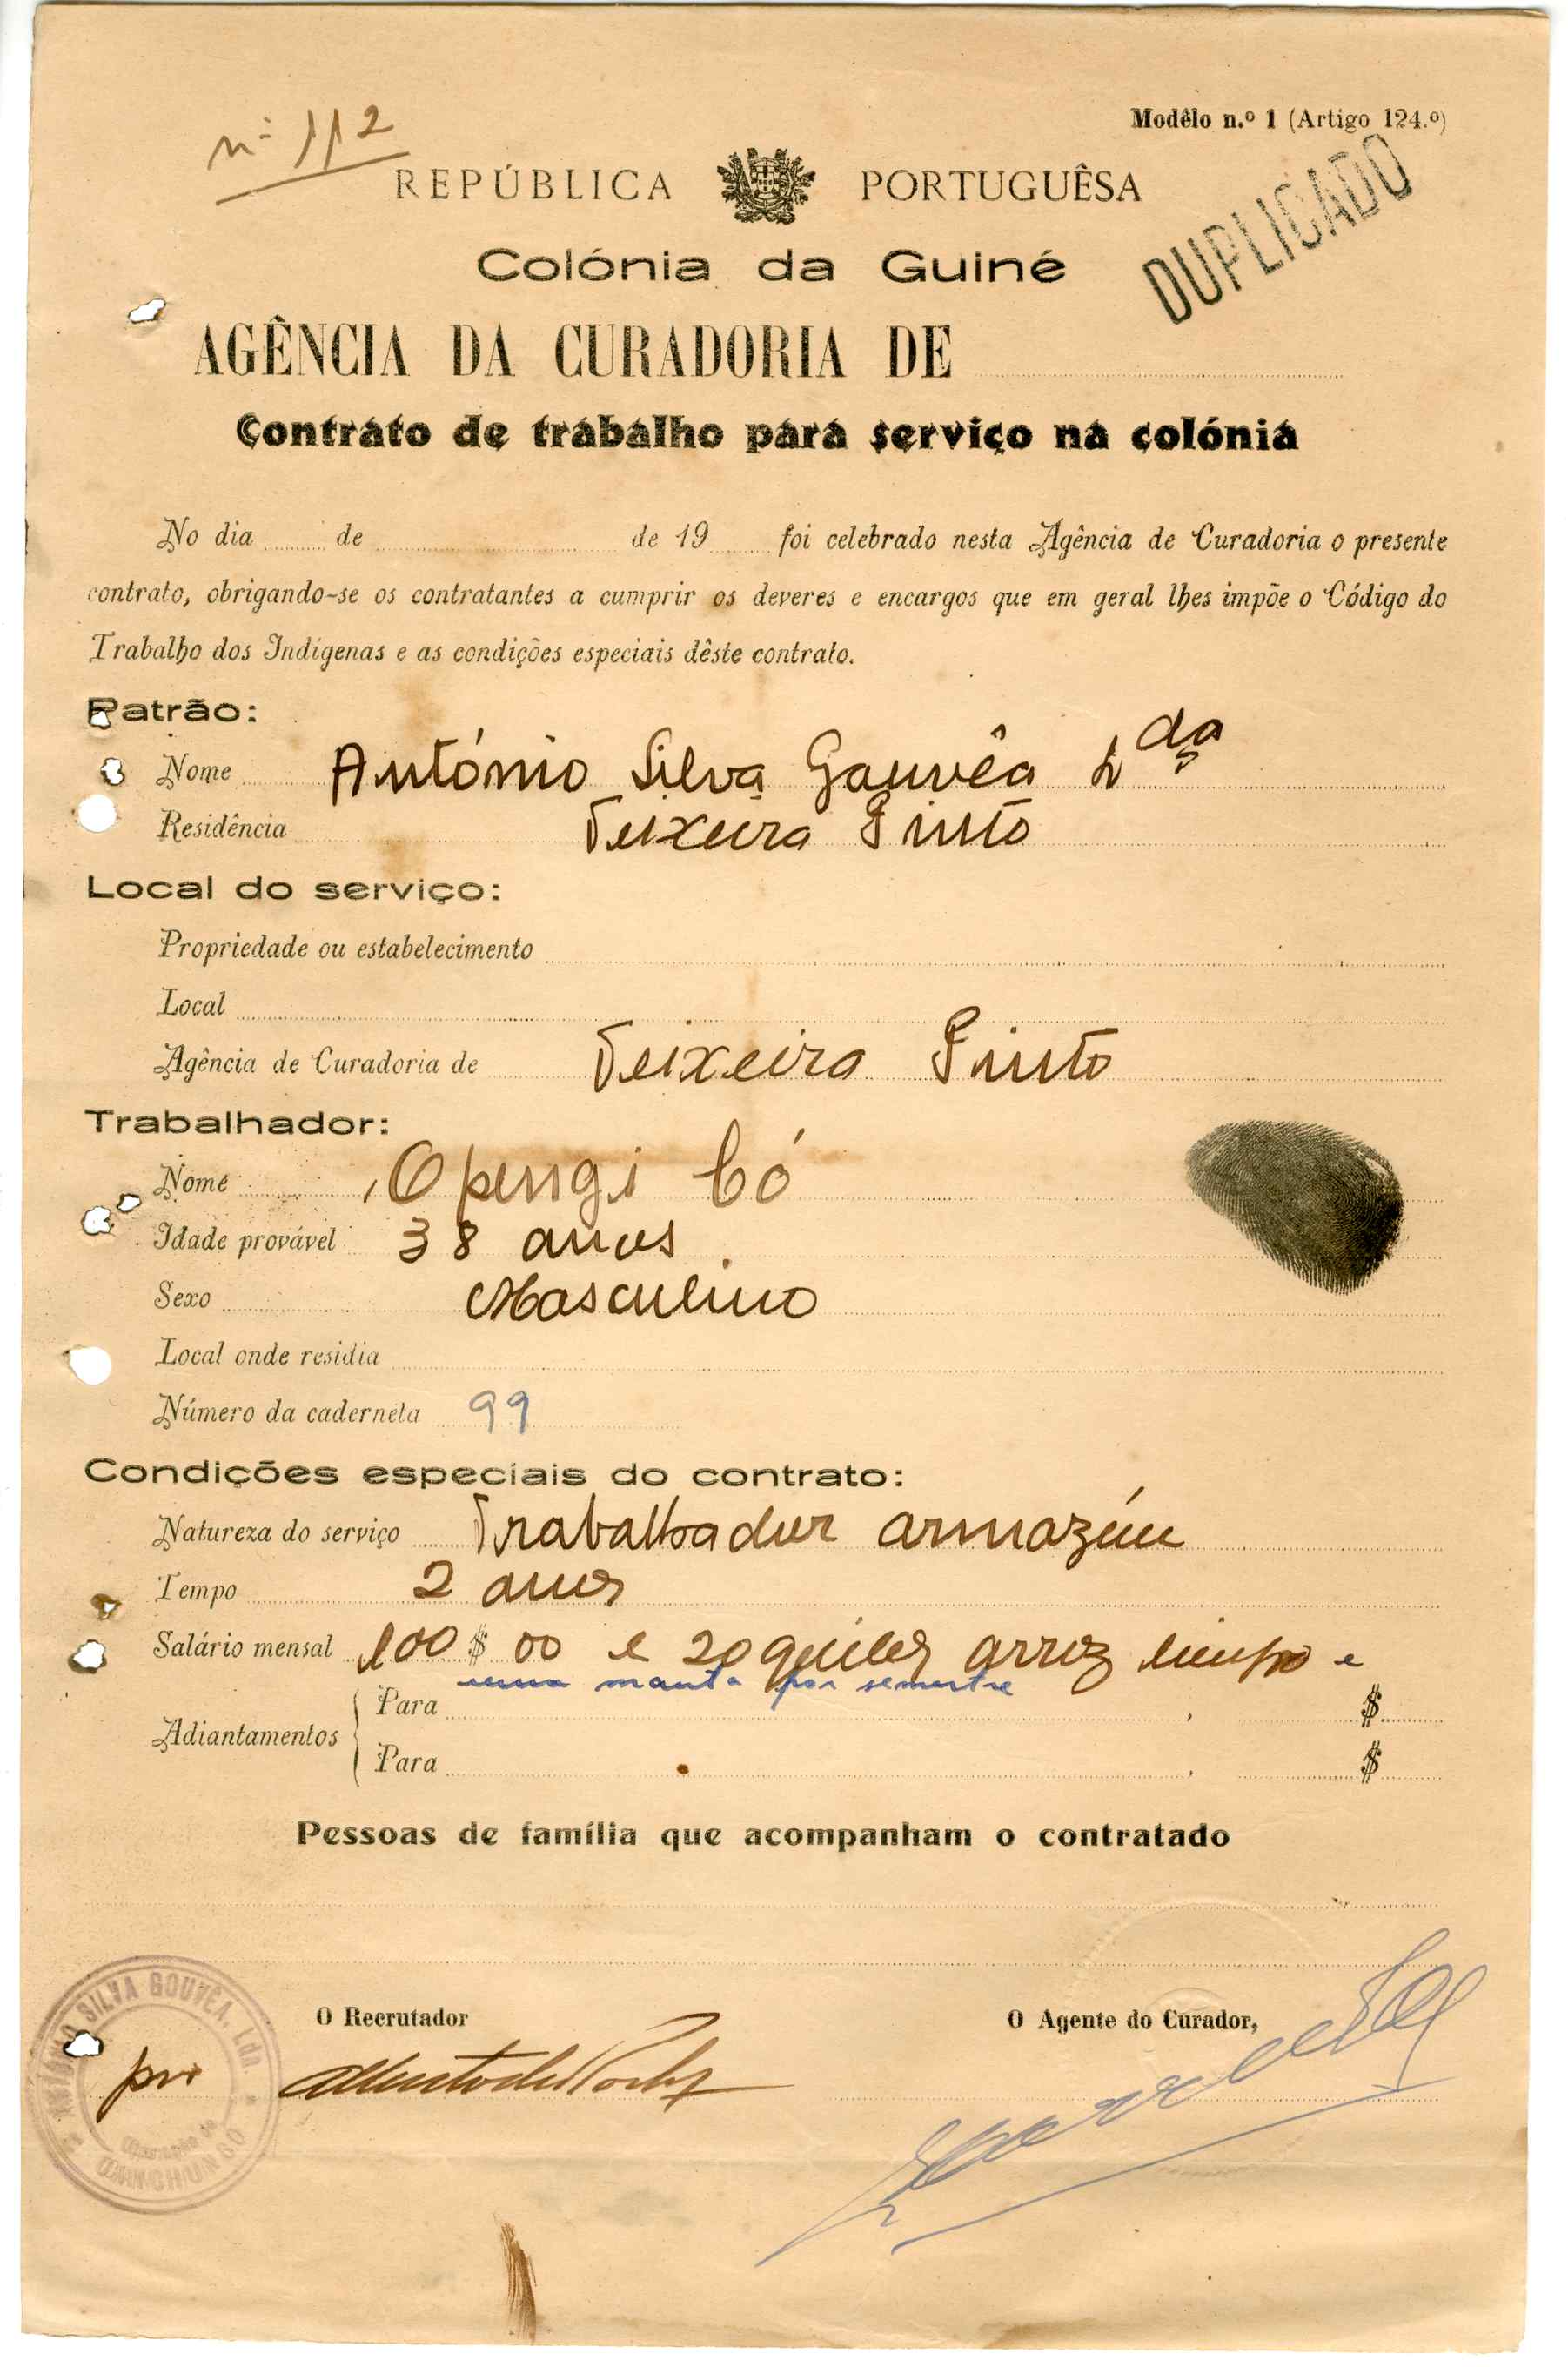 nº 112
Modêlo n.º 1 (Artigo 124.º)
REPÚBLICA PORTUGUÊSA
DUPLICADO
Colónia da Guiné
AGÊNCIA DA CURADORIA DE
Contrato de trabalho para serviço na colónia
No dia de de 19 foi celebrado nesta Agência de Curadoria o presente
contrato, obrigando-se os contratantes a cumprir os deveres e encargos que em geral lhes impõe o Código do
Trabalho dos Indígenas e as condições especiais dêste contrato.
Patrão:
Nome António Silva Gouvêa Lda
Residência Teixeira Pinto
Local do serviço:
Propriedade ou estabelecimento
Local
Agência de Curadoria de Teixeira Pinto
Trabalhador:
Nome Opengi Có
Idade provável 38 anos
Sexo Masculino
Local onde residia
Número da caderneta 99
Condições especiais do contrato:
Natureza do serviço Trabalhador armazém
Tempo 2 anos
Salário mensal 100$00 e 20 quilos arroz limpo e
uma manta por semestre
Adiantamentos
Para $
Para $
Pessoas de família que acompanham o contratado
O Recrutador
O Agente do Curador,
ANTÓNIO SILVA GOUVÊA, Lda.
CANCHUNGO
por